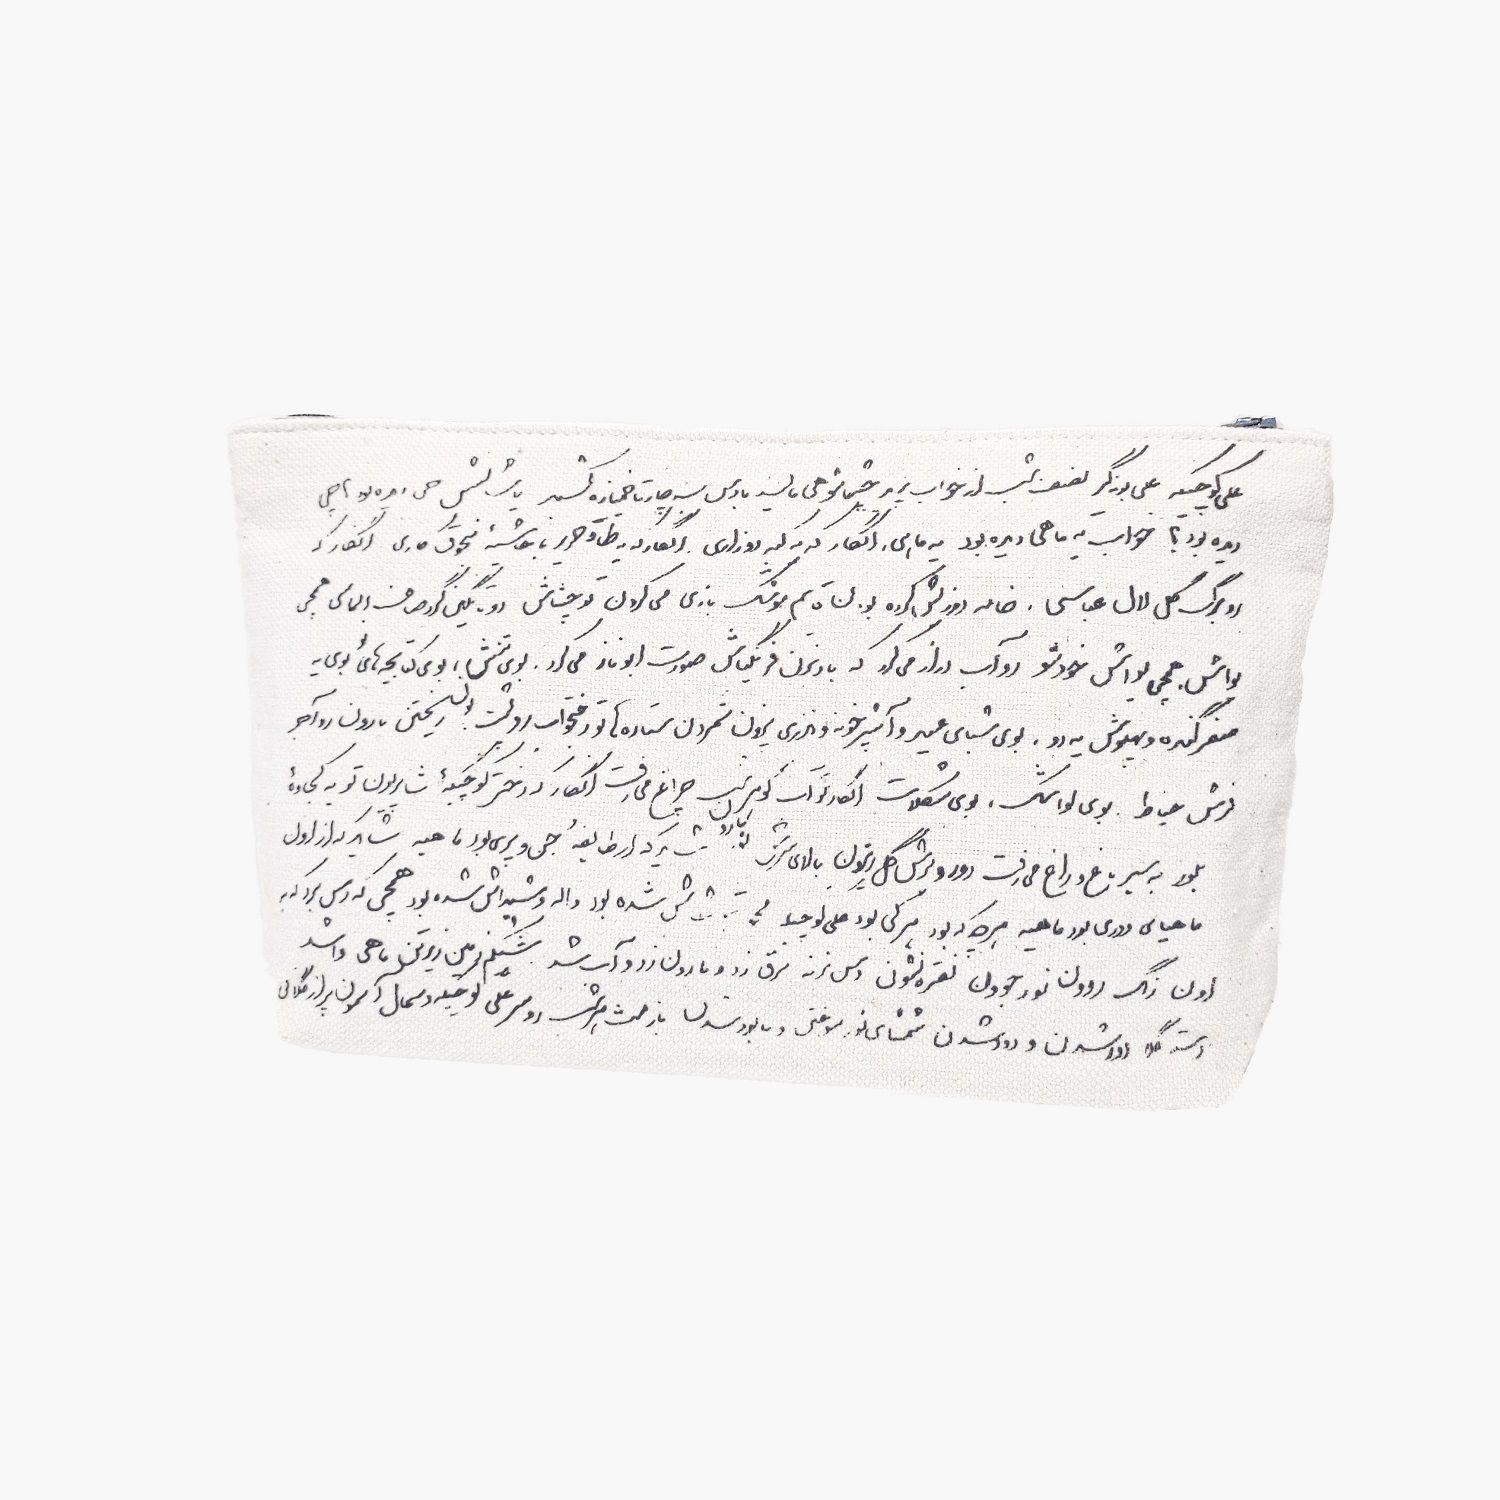 علی کوچیکه علی بونه گیر نصف شب از خواب پرید چشماشو هی مالید با دس سه چار تا خمیازه کشید پا شد نشس چی دیده بود؟ چی
دیده بود؟ خواب یه ماهی دیده بود یه ماهی، انگار که یه کپه دوزاری انگار که یه طاقه حریر با حاشیهٔ منجوق کاری انگار که
رو برگ گل لال عباسی، خامه دوزیش کرده بودن قایم موشک بازی می کردن تو چشاش دو تا نگین گرد صاف الماسی همچی
یواش، همچی یواش خودشو رو آب دراز می کرد که بادبزن فرنگیاش صورت آبو ناز می کرد. بوی تنش، بوی کتابچه های نو بوی یه
صفر گنده و پهلوش یه دو، بوی شبای عید و آشپزخونه و نذری پزون شمردن ستاره ها تو رختخواب رو پشت بون ریختن بارون رو آجر
فرش حیاط بوی لواشک، بوی شکلات انگار تو آب گوهر شب چراغ می رفت انگار که دختر کوچیکهٔ شاپریون تو یه کجاوهٔ
بلور به سیر باغ و راغ می رفت دور و ورش گل ریزون بالای سرش نور بارون شاید که از طایفهٔ جن و پری بود ماهیه شاید که از اون
ماهیای ددری بود ماهیه هرچی که بود هر کی بود علی کوچیکه محو تماشاش شده بود واله و شیداش شده بود همچی که دس برد که به
اون رنگ روون نور جوون نقره نشون دس بزنه برق زد و بارون زد و آب سیا شد شیکم زمین زیر تن ماهی وا شد
دسته گلا دور شدن و دود شدن شمشای نور سوختن و نابود شدن باز مث هر شب رو سر علی کوچیکه دسمال آسمون پر از گلابی